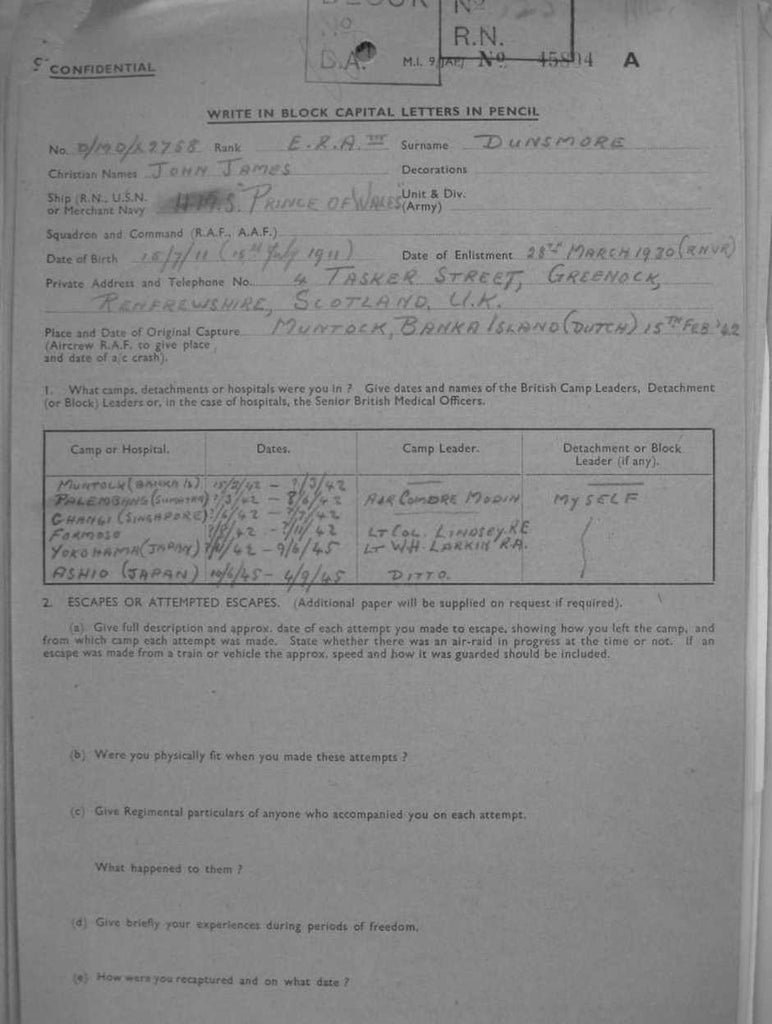 No
R.N.
D.A.
CONFIDENTIAL M.I. 9/JAP/ No 45804 A
WRITE IN BLOCK CAPITAL LETTERS IN PENCIL
No. D/MD/X2758 Rank E.R.A. III Surname DUNSMORE
Christian Names JOHN JAMES Decorations
Ship (R.N., U.S.N. or Merchant Navy H.M.S. "PRINCE OF WALES" Unit & Div. (Army)
Squadron and Command (R.A.F., A.A.F.)
Date of Birth 15/7/11 (15th July 1911) Date of Enlistment 28TH MARCH 1930 (RNVR)
Private Address and Telephone No. 4 TASKER STREET, GREENOCK,
RENFREWSHIRE, SCOTLAND, U.K.
Place and Date of Original Capture MUNTOCK, BANKA ISLAND (DUTCH) 15TH FEB '42
(Aircrew R.A.F. to give place
and date of a/c crash).
1. What camps, detachments or hospitals were you in ? Give dates and names of the British Camp Leaders, Detachment
(or Block) Leaders or, in the case of hospitals, the Senior British Medical Officers.
Camp or Hospital. Dates. Camp Leader. Detachment or Block Leader (if any).
MUNTOCK (BANKA IS) 15/2/42 - ?/3/42
PALEMBANG (SUMATRA) ?/3/42 - ?/6/42 AIR COMDRE MODIN MYSELF
CHANGI (SINGAPORE) ?/6/42 - ?/7/42
FORMOSO ?/8/42 - ?/11/42 LT COL. LINDSEY. RE
YOKOHAMA (JAPAN) ?/11/42 - 9/6/45 LT W.H. LARKIN R.A.
ASHIO (JAPAN) 10/6/45 - 4/9/45 DITTO.
2. ESCAPES OR ATTEMPTED ESCAPES. (Additional paper will be supplied on request if required).
(a) Give full description and approx. date of each attempt you made to escape, showing how you left the camp, and
from which camp each attempt was made. State whether there was an air-raid in progress at the time or not. If an
escape was made from a train or vehicle the approx. speed and how it was guarded should be included.
(b) Were you physically fit when you made these attempts ?
(c) Give Regimental particulars of anyone who accompanied you on each attempt.
What happened to them ?
(d) Give briefly your experiences during periods of freedom.
(e) How were you recaptured and on what date ?